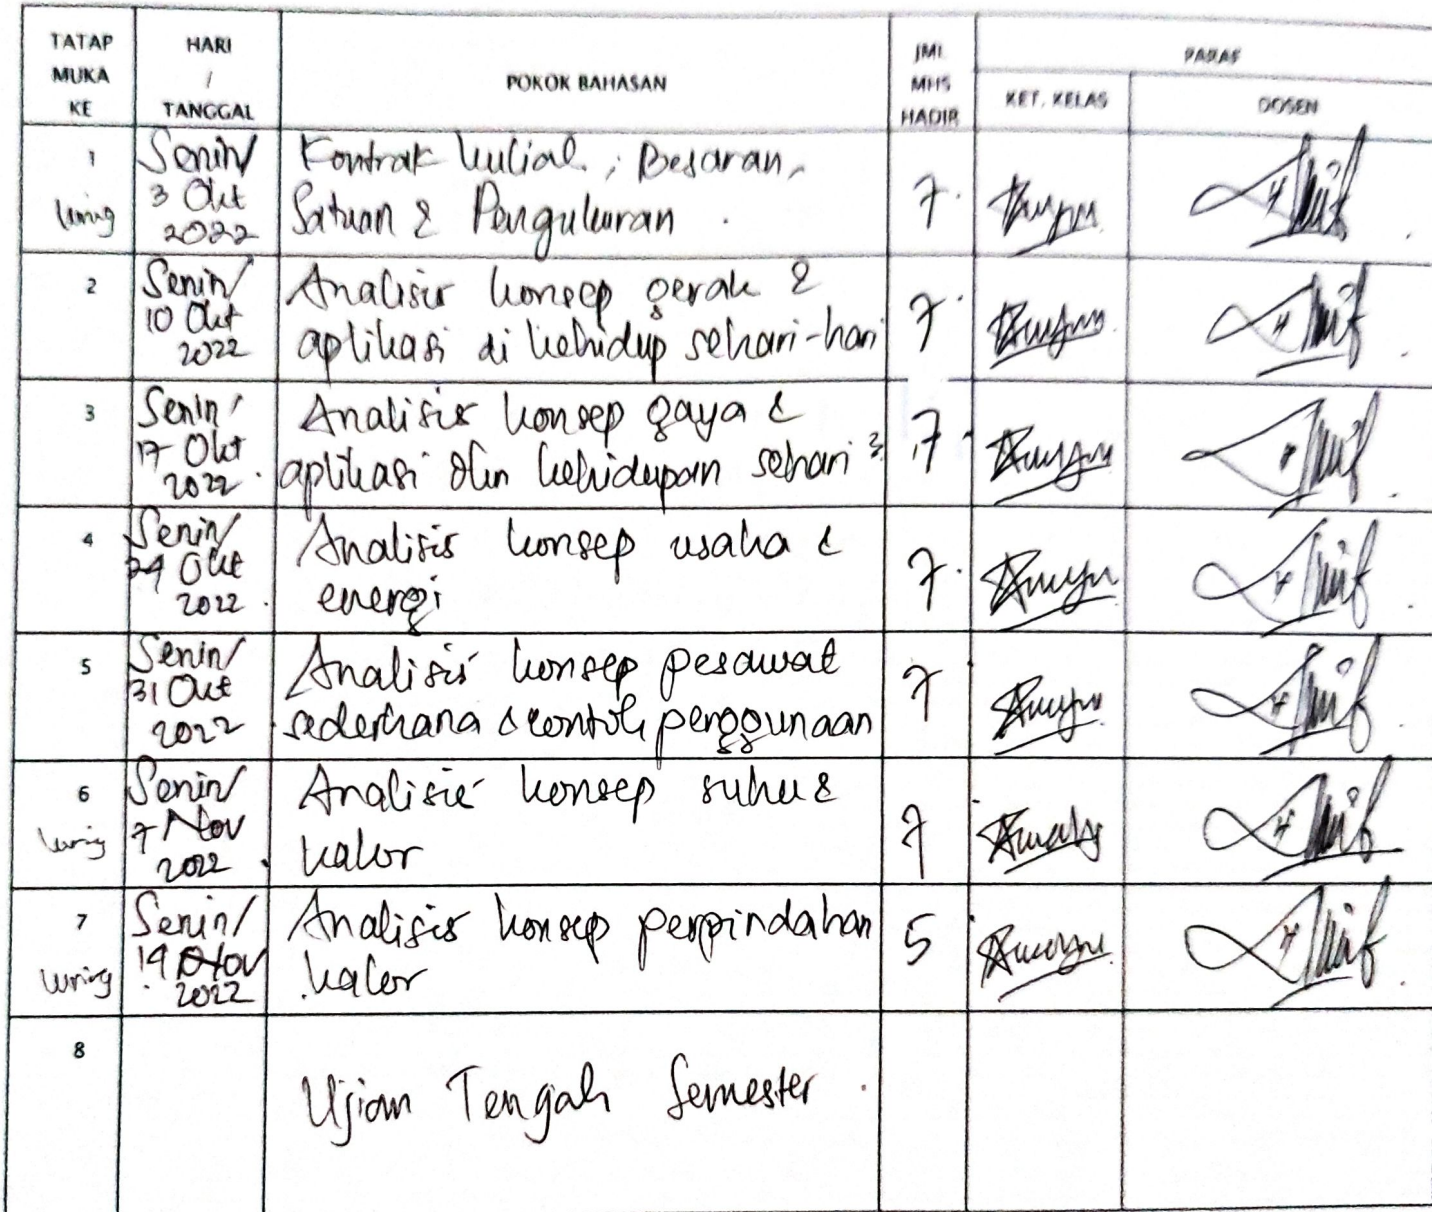 TATAP MUKA KE
HARI / TANGGAL
POKOK BAHASAN
JML MHS HADIR
PARAF
KET. KELAS
DOSEN
1
luring
Senin/
3 Okt
2022
Kontrak kuliah ; Besaran,
Satuan & Pengukuran .
7.
2
Senin/
10 Okt
2022
Analisis konsep gerak &
aplikasi di kehidup sehari-hari
7.
3
Senin/
17 Okt
2022.
Analisis konsep gaya &
aplikasi dlm kehidupan sehari²
7.
4
Senin/
24 Okt
2022.
Analisis konsep usaha &
energi
7.
5
Senin/
31 Okt
2022.
Analisis konsep pesawat
sederhana & contoh penggunaan
7
6
luring
Senin/
7 Nov
2022.
Analisis konsep suhu &
kalor
7
7
luring
Senin/
14 Nov
2022
Analisis konsep perpindahan
kalor
5
8
Ujian Tengah Semester .